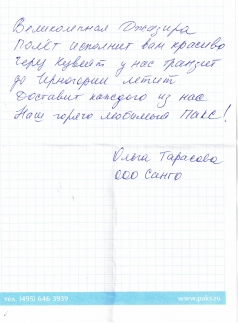 Великолепная Джазира
Полёт исполнит вам красиво
Через Кувейт у нас транзит
до Черногории летит
Доставит каждого из нас
Наш горячо любимый Пакс!
Ольга Тарасова
ООО Санго
тел. (495) 646 3939
www.paks.ru